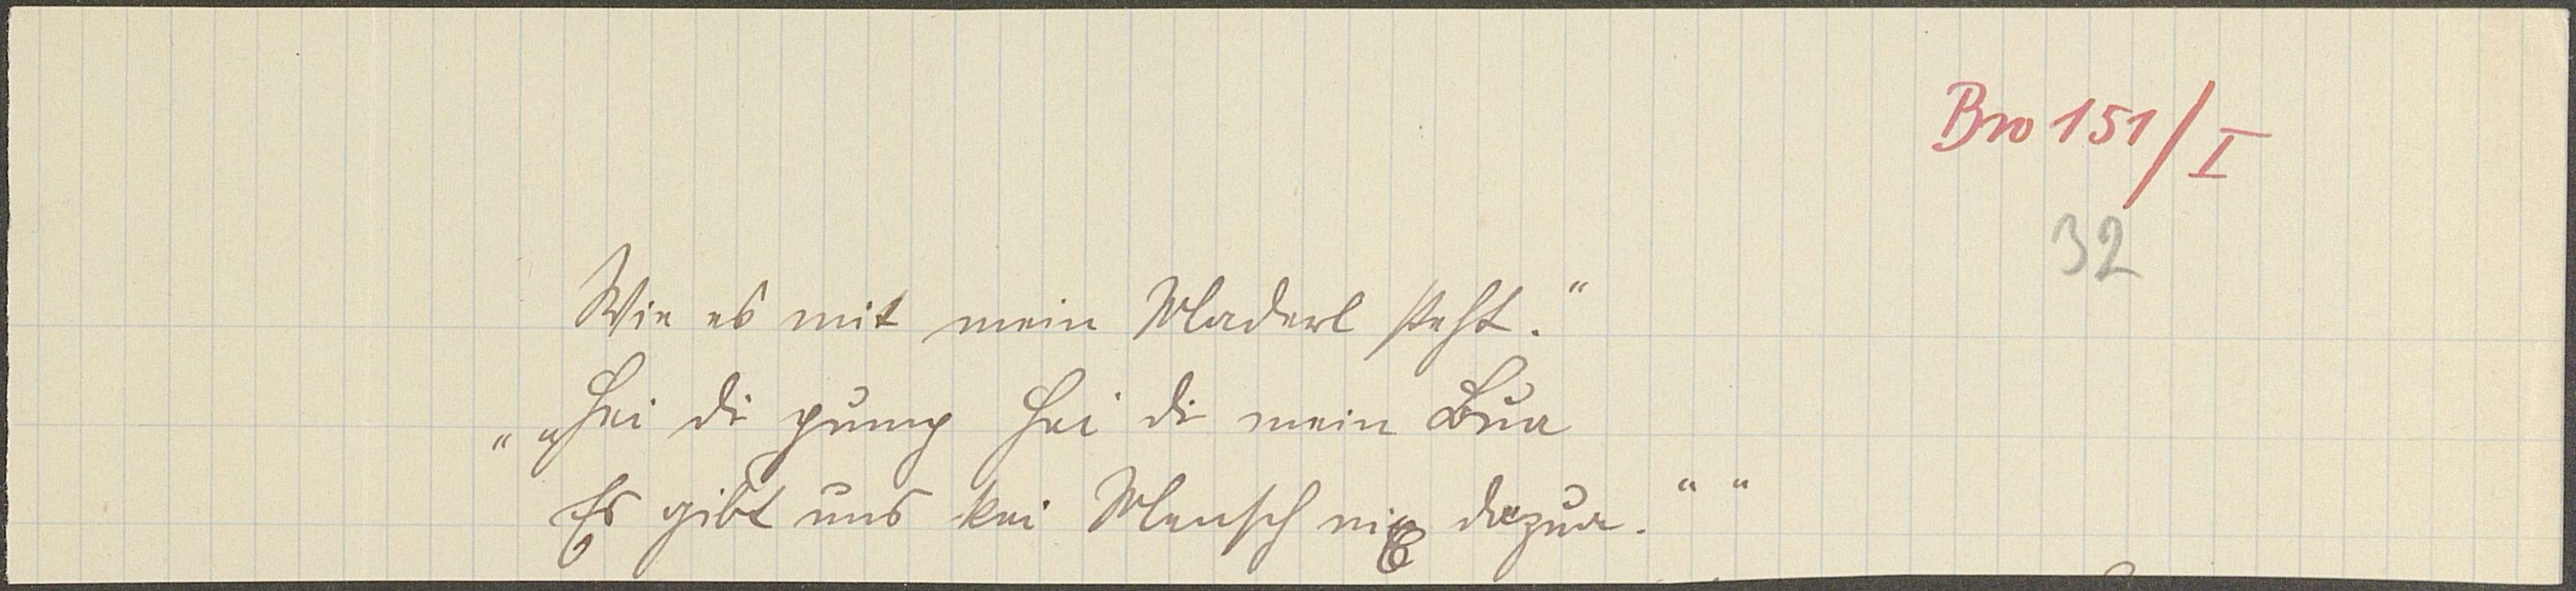 Bro 151/I
32
Wie es mit mein Maderl steht."
" "Hei di pump hei di mein Bua
Es gibt uns kei Mensch nix dazua." "